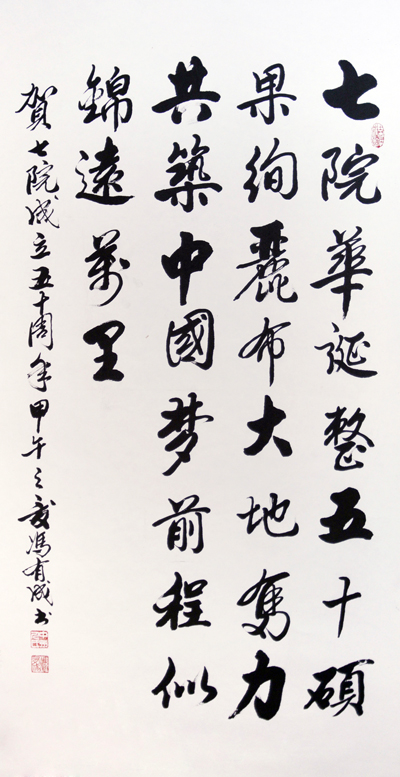 七院華誕整五十碩
果絢麗布大地奮力
共築中國梦前程似
錦遠萬里
賀七院成立五十周年甲午之夏馮有成书